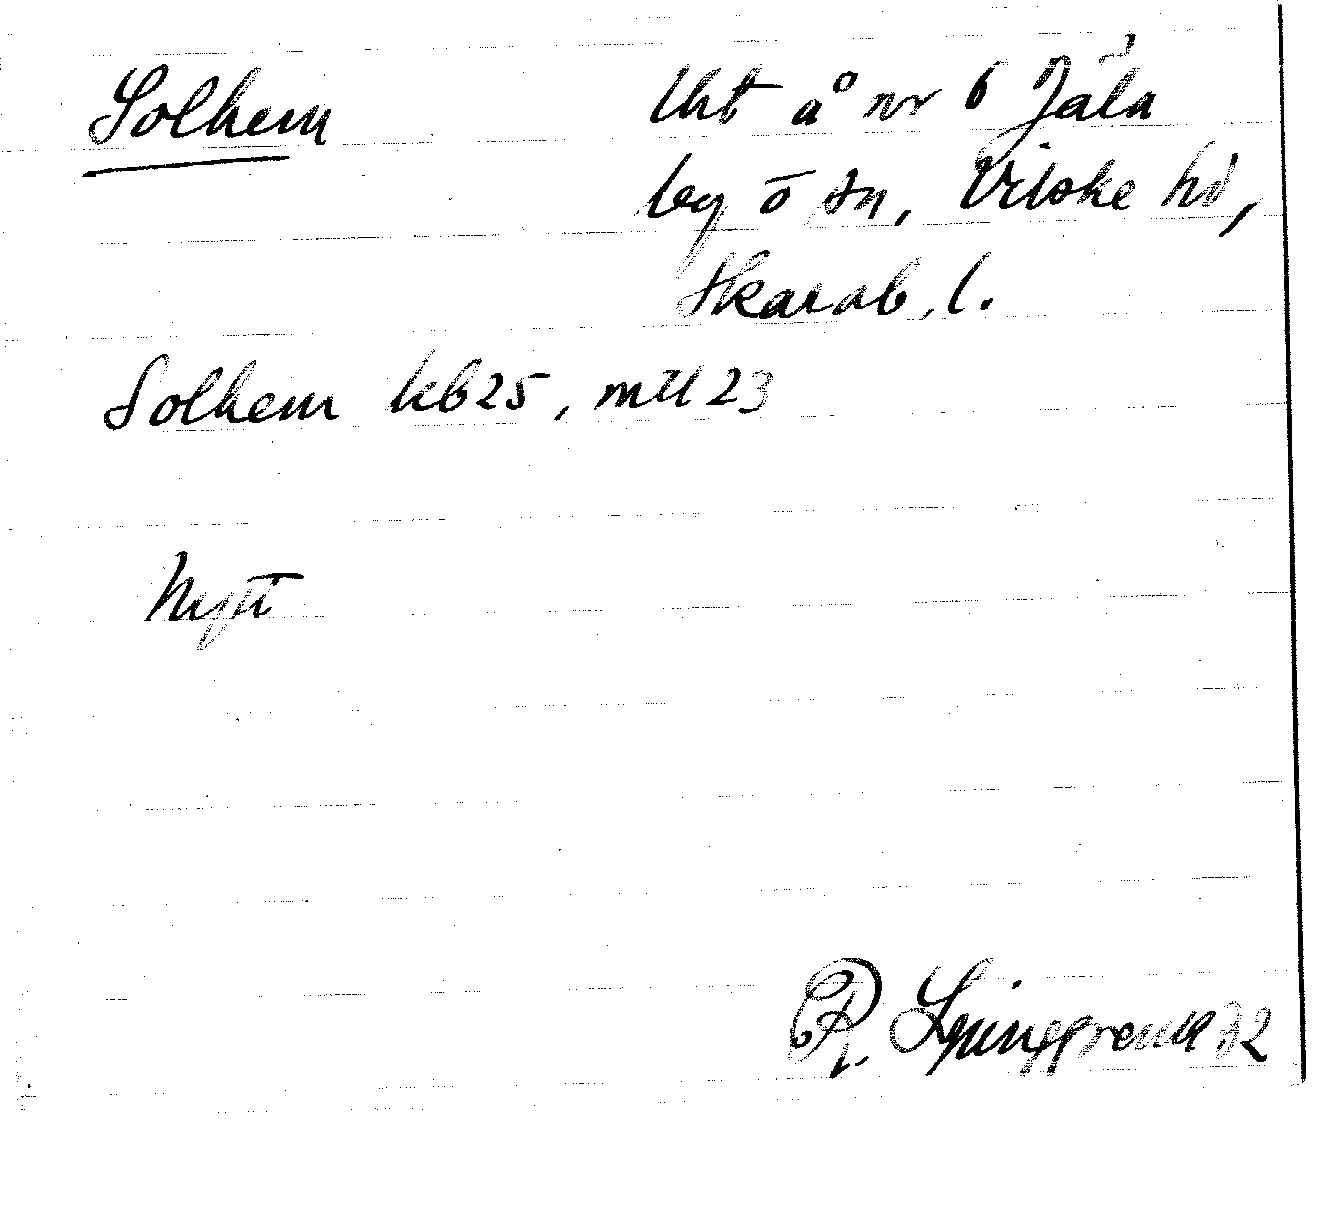 Solhem
Lht å nr 6 Jäla
by o sn, Vilske hd,
Skarab. l.
Solhem kb 25, mtl 23
Nytt
R. Ljunggren 1932